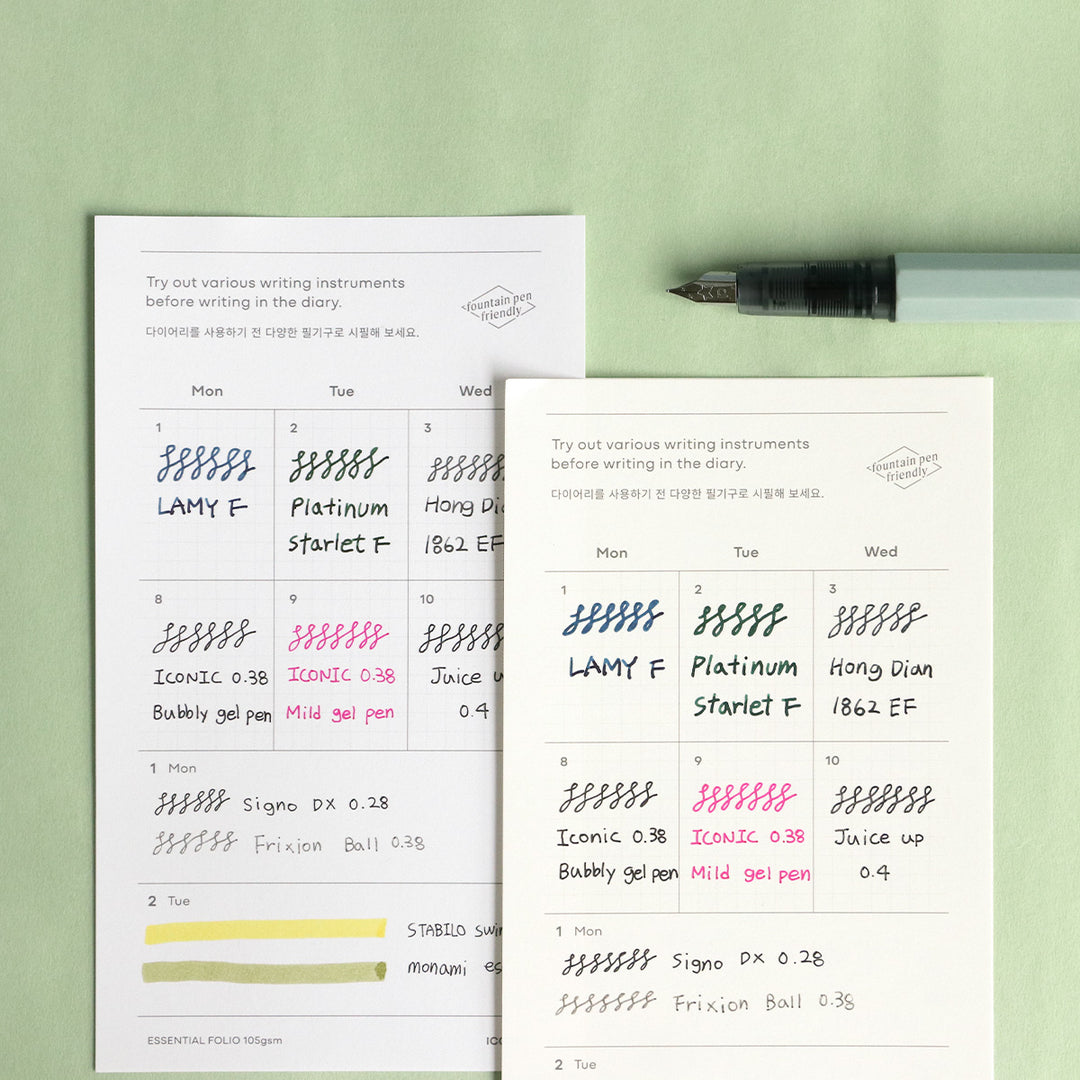 Try out various writing instruments
before writing in the diary.
다이어리를 사용하기 전 다양한 필기구로 시필해 보세요.
fountain pen
friendly
Mon Tue Wed
1 2 3
LAMY F Platinum Hong
Starlet F 1862 EF
8 9 10
ICONIC 0.38 ICONIC 0.38 Juice
Bubbly gel pen Mild gel pen 0.4
1 Mon
Signo DX 0.28
Frixion Ball 0.38
2 Tue
STABILO
monami
ESSENTIAL FOLIO 105gsm
Try out various writing instruments
before writing in the diary.
다이어리를 사용하기 전 다양한 필기구로 시필해 보세요.
fountain pen
friendly
Mon Tue Wed
1 2 3
LAMY F Platinum Hong Dian
Starlet F 1862 EF
8 9 10
Iconic 0.38 ICONIC 0.38 Juice up
Bubbly gel pen Mild gel pen 0.4
1 Mon
Signo DX 0.28
Frixion Ball 0.38
2 Tue